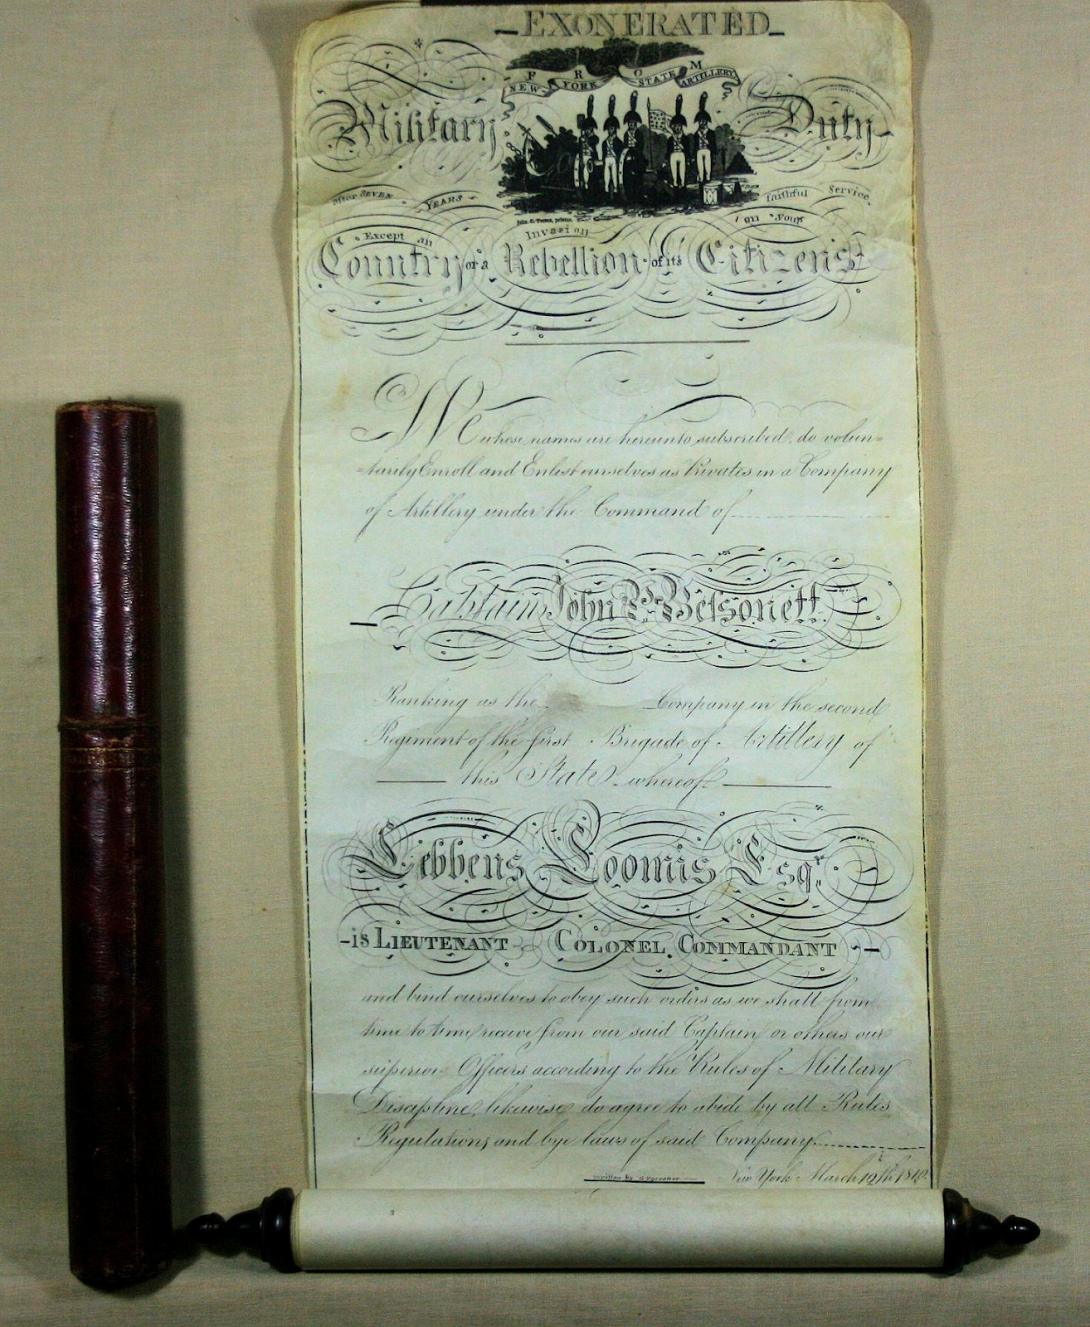 EXONERATED
FROM
NEW YORK STATE ARTILLERY
Military Duty
after SEVEN YEARS faithful Service
Except an Invasion on Your
Country or a Rebellion of its Citizens
We whose names are hereunto subscribed, do volun=
=tarily Enroll and Enlist ourselves as Privates in a Company
of Artillery under the Command of
Captain John
Ranking as the Company in the second
Regiment of the first Brigade of Artillery of
this State whereof
Lebbens Loomis Esqr.
is LIEUTENANT COLONEL COMMANDANT
and bind ourselves to obey such orders as we shall from
time to time receive from our said Captain or others our
superior Officers according to the Rules of Military
Discipline, likewise do agree to abide by all Rules
Regulations and bye laws of said Company.
written by
New York March